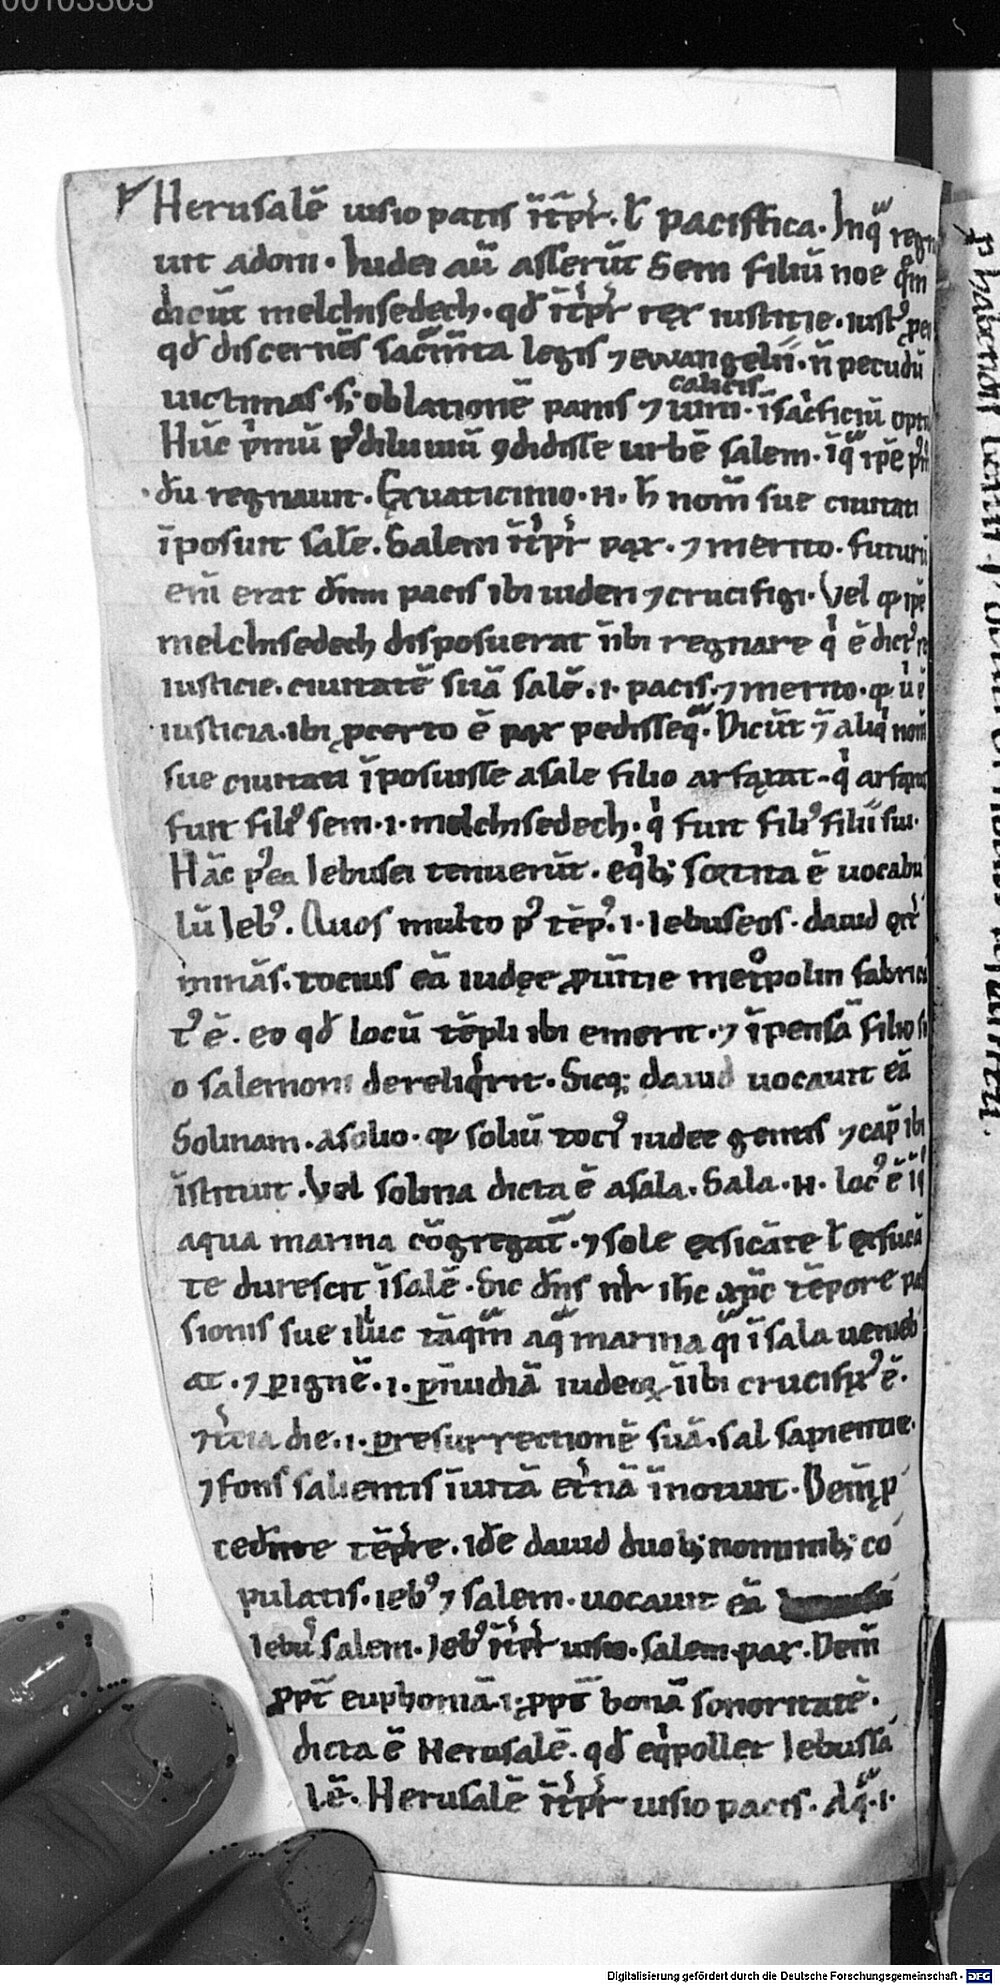 00103303
Herusalē uisio pacis īt̄pr̄. ł pacifica. Inq̄ regna
uit adoni. Iudei aū asserūt Sem filiū noe q̄m
dicūt melchisedech. qđ īt̄pr̄ rex iusticie. iustꝰ
qđ discernēs sac̄mta legis ⁊ ewangelii. n̄ pecudū
uictimas. s; oblationē panis ⁊ uini. ī sac̄ficiū
calicis
Hūc p̄mū pꝰ diluuiū ꝯdidisse urbē salem. īq̄ ip̄e
du regnauit. Ex uaticinio. n. h̄ nom̄ sue ciuitati
īposuit salē. Salem īt̄pr̄ pax. ⁊ merito. futurū
eni erat dn̄m pacis ibi uideri ⁊ crucifigi. Vel ꝙ ip̄e
melchisedech disposuerat īibi regnare q̇ ē dictꝰ
iusticie. ciuitatē suā salē. i. pacis. ⁊ merito. ꝙ ů ē
iusticia. ibi ꝓcerto ē pax pedisseq̄. Dicūt ⁊̄ aliq̇ nom̄
sue ciuitati īposuisse asale filio arfaxat. q̇
fuit filiꝰ sem. i. melchisedech. q̇ fuit filiꝰ filii sui.
Hāc pꝰea Iebusei tenuerūt. eq̇b; sortita ē uocabu
lū Iebꝰ. Quos multo pꝰ tēpꝰ. i. Iebuseos. dauid
minās. tocius eā iudęe ꝓuīntie met̊polin
tꝰ ē. eo qđ locū tēpli ibi emerit. ⁊ īpensā filio
o salemoni dereliq̇rit. Sicq; dauid uocauit eā
Solimam. asolio. ꝙ soliū tociꝰ iudee gentis ⁊ cap̄ ibi
īstituit. Vel solima dicta ē asala. Sala. n. locꝰ ē
aqua marina cōgregat̄. ⁊ sole exsicāte ł
te durescit ī salē. Sic dn̄s nr̄ ihc xp̄c tēpore pas
sionis sue illuc tāq̄m aq̄ marina q̄i ī sala ueniеb
at. ⁊ ꝑ ignē. i. ꝑ īuidiā iudeoꝝ īibi crucifixꝰ ē.
⁊ t̄cia die. i. ꝑ resurrectionē suā. sal sapientie.
⁊ fons salientis ī uitā et̄nā īnotuit. Dem̄ p
cedente tēpre. idē dauid duob; nominib; co
pulatis. iebꝰ ⁊ salem. uocauit eā
Iebuˢsalem. Iebꝰ īt̄pr̄ uisio. salem pax. Dem̄
ꝓpt̄ euphoniā. i. ꝓpt̄ bonā sonoritatē.
dicta ē Herusalē. qđ eq̇pollet Iebussa
lē. Herusalē īt̄pr̄ uisio pacis. Aq̄. i.
Digitalisierung gefördert durch die Deutsche Forschungsgemeinschaft - DFG